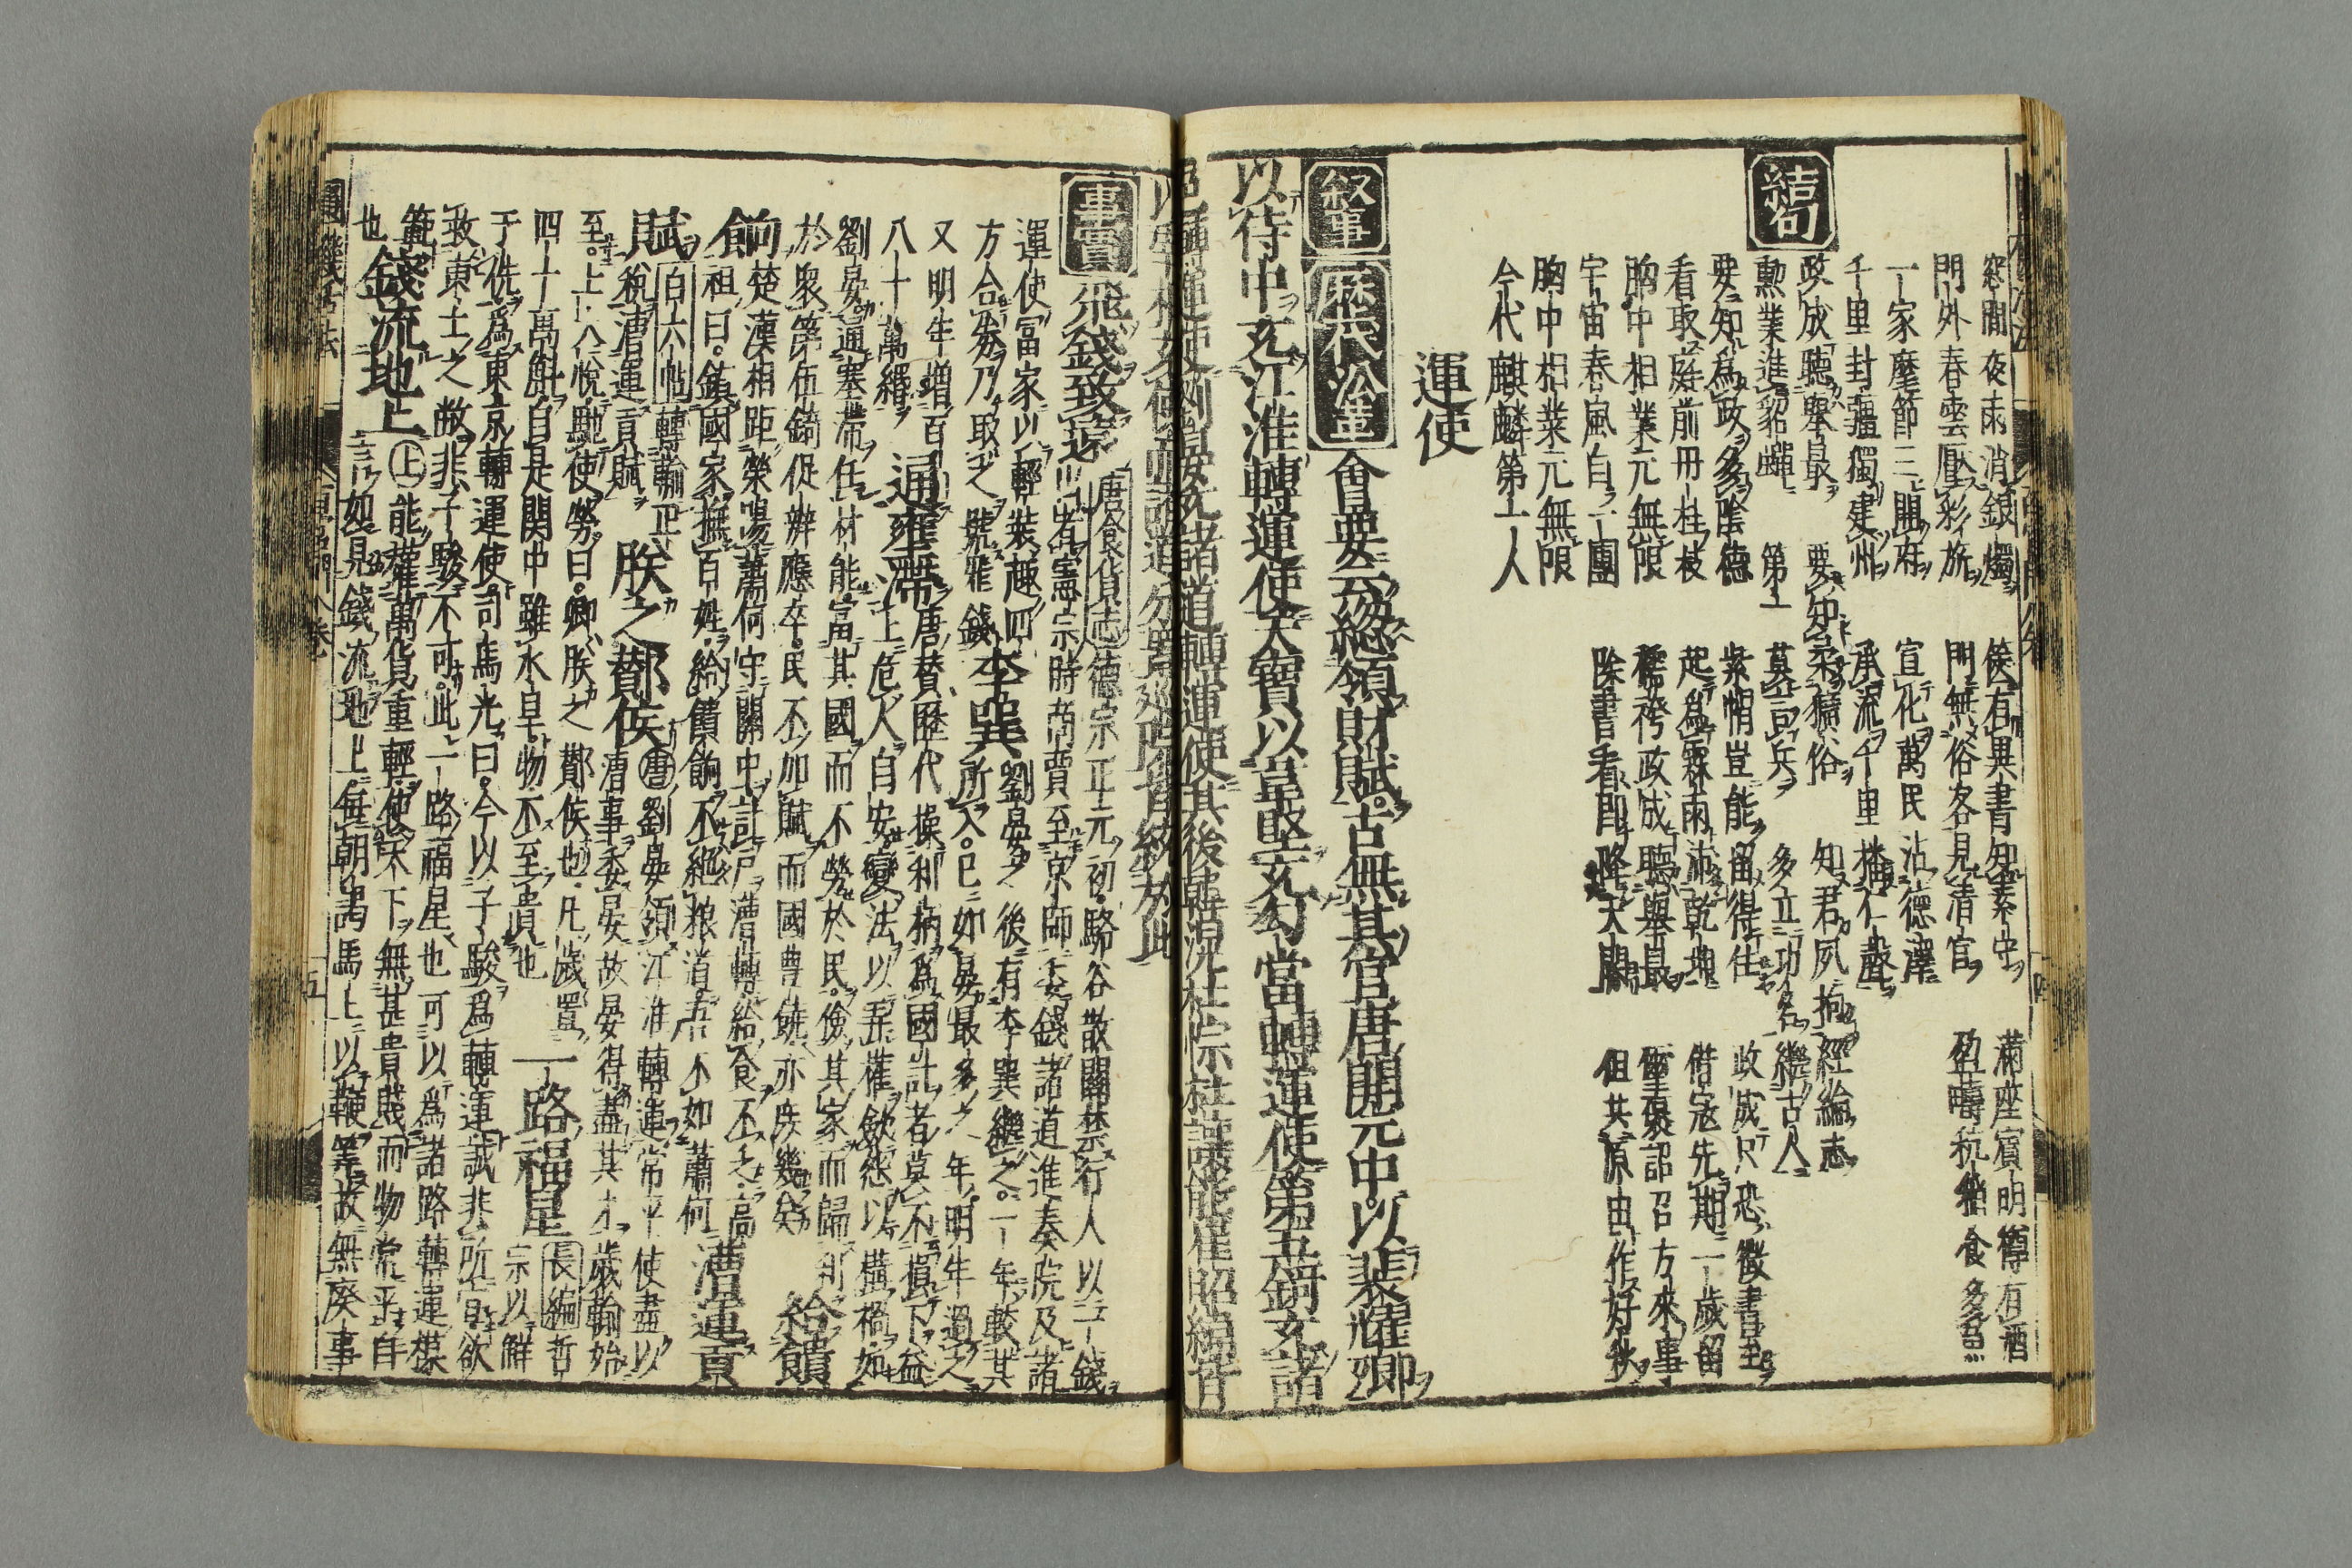 窓間夜雨消銀燭
門外春雲壓彩旂
一家麾節三開府
千里封疆獨建州
政成聽舉最
勲業進貂蟬
要知爲政多陰德
看取庭前丹桂枝
胸中相業元無限
宇宙春風自一團
胸中相業元無限
今代麒麟第一人
結句
門無俗客見清官
宣化萬民沾德澤
承流千里播仁聲
要知柔獷俗
第一莫言兵
紫帽豈能留得住
起爲霖雨沛乾坤
襦袴政成聽舉最
除書看即降天關
滿座賓明樽有酒
知君夙抱經綸志
多立功名繼古人
政成只恐徵書至
借寇先期一歲留
璽褒詔召方來事
但共原田作好秋
運使
叙事
歷代沿革
會要云緫領財賦古無其官唐開元中以裴耀卿
以侍中充江淮轉運使天寶以韋堅充勾當轉運使後第五錡充諸
色轉運使劉晏充諸道轉運使其後韓滉杜悰杜讓能崔昭緯皆
以宰相充使而諸道分置巡院皆統於此
事實
飛錢致遠
唐食貨志
德宗正元初駱谷散關禁行人以一錢
出者憲宗時商賈至京師委錢諸道進奏院及諸
運使富家以輕裝趣四
方合劵乃取之號飛錢
李巽
劉晏之後有李巽繼之一年較其
所入已如晏最多之年明年過之
又明年增百
八十萬緡
通壅滯
唐贊歷代操利柄爲國計者莫不損下益
上危人自安變法以弄權歛怨以構禍如
劉晏通塞滯任材能富其國而不勞於民儉其家而歸利
於衆第五錡促辦應卒民不加賦而國豊饒亦庶幾矣
給饋
餉
楚漢相距滎陽蕭何守關中計戶漕轉給食不乏高
祖曰鎮國家撫百姓給饋餉不絕粮道吾不如蕭何
漕運貢
賦
白六帖
轉輸正
稅漕運貢賦
朕之酇侯
唐
劉晏領江淮轉運常平使盡以
漕事委晏故晏得盡其才歲輸始
至上大悅馳使勞曰卿朕之酇侯也凡歲置
四十萬斛自是関中雖水旱物不至貴也
一路福星
長編
哲
宗以鮮
于侁爲東京轉運使司馬光曰今以子駿爲轉運誠非所宜欲
救東土之敝非子駿不可此一路福星也可以爲諸路轉運模
範
也
錢流地上
上
能權萬貨重輕使天下無甚貴賤而物常平自
言如見錢流地上每朝謁馬上以鞭筭故無廢事
圓機活法
五